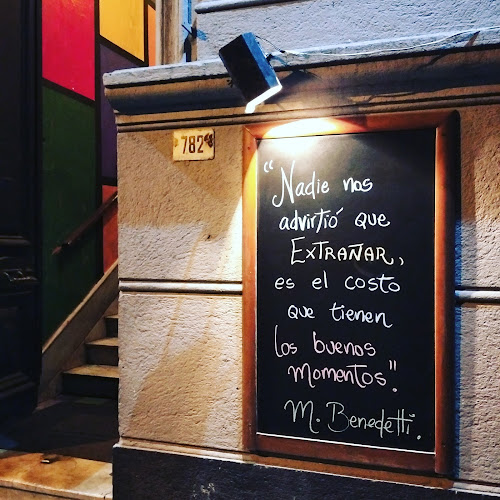 782
"Nadie nos
advirtió que
EXTRAÑAR,
es el costo
que tienen
los buenos
momentos".
M. Benedetti.